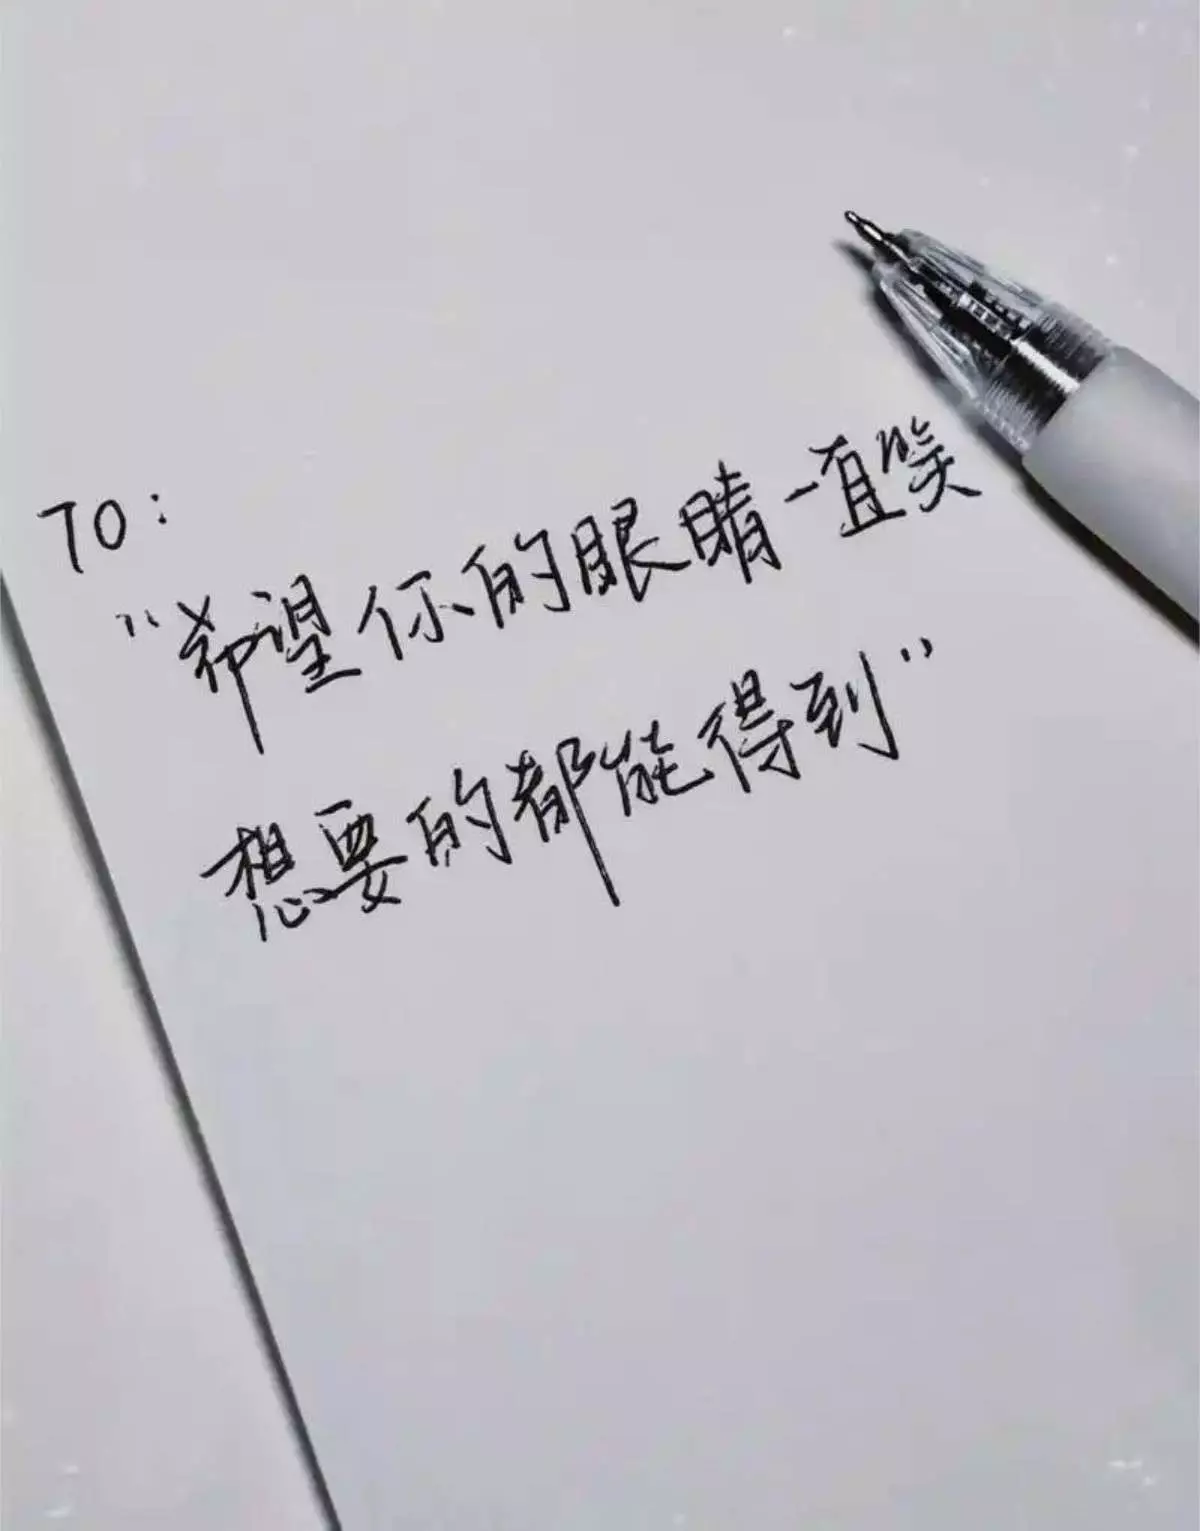 TO:
“希望你的眼睛一直笑
想要的都能得到”